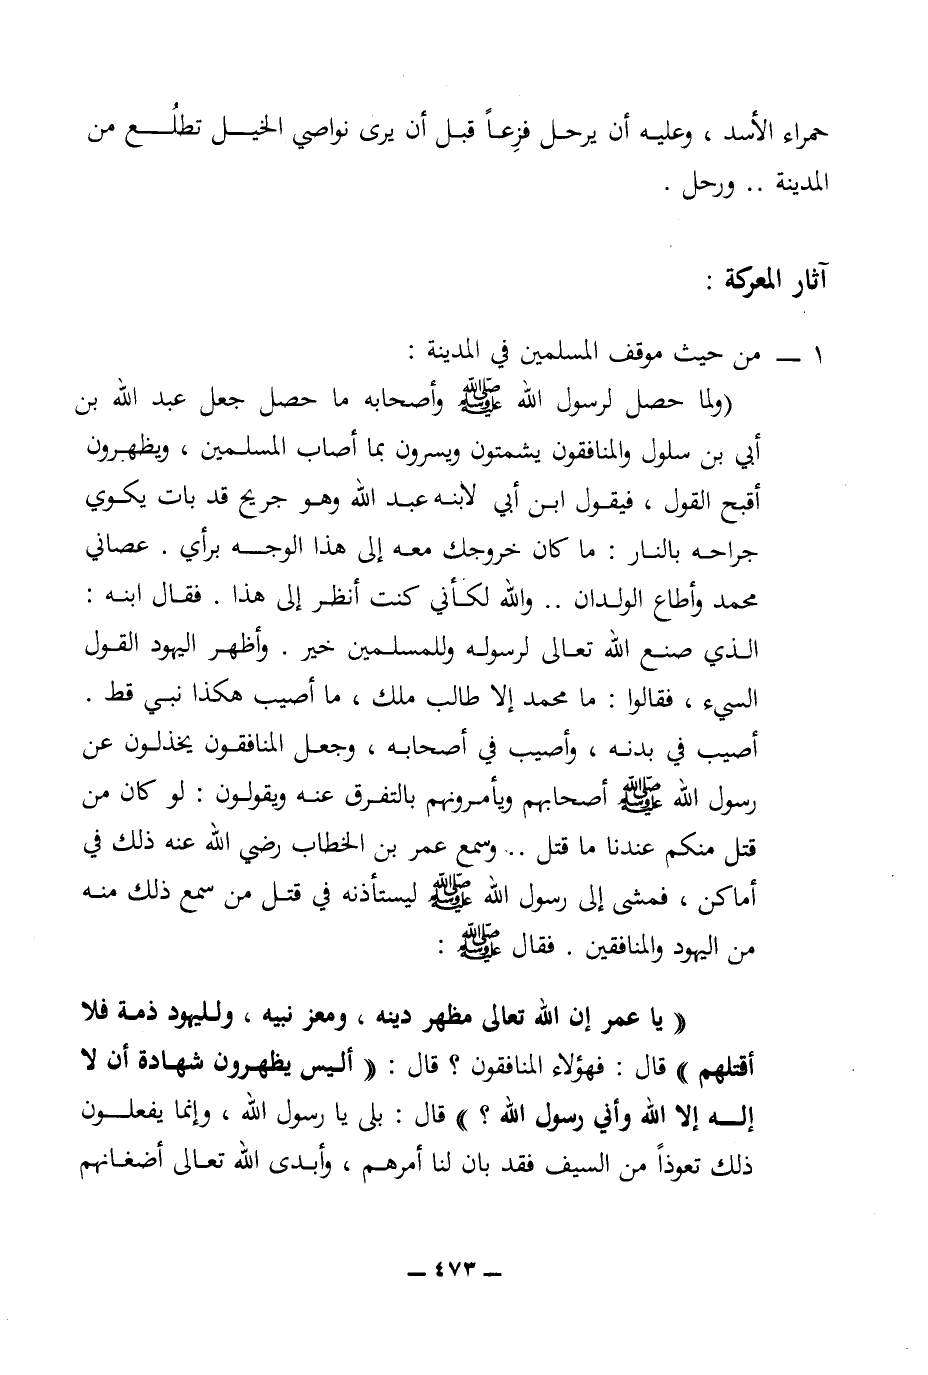 حمراء الأسد ، وعليه أن يرحل فزِعاً قبل أن يرى نواصي الخيل تطلُع من
المدينة .. ورحل .
آثار المعركة :
١ ــ من حيث موقف المسلمين في المدينة :
(ولما حصل لرسول الله ﷺ وأصحابه ما حصل جعل عبد الله بن
أبي بن سلول والمنافقون يشمتون ويسرون بما أصاب المسلمين ، ويظهرون
أقبح القول ، فيقول ابن أبي لابنه عبد الله وهو جريح قد بات يكوي
جراحه بالنار : ما كان خروجك معه إلى هذا الوجه برأي . عصاني
محمد وأطاع الولدان .. والله لكأني كنت أنظر إلى هذا . فقال ابنه :
الذي صنع الله تعالى لرسوله وللمسلمين خير . وأظهر اليهود القول
السيء ، فقالوا : ما محمد إلا طالب ملك ، ما أصيب هكذا نبي قط .
أصيب في بدنه ، وأصيب في أصحابه ، وجعل المنافقون يخذلون عن
رسول الله ﷺ أصحابهم ويأمرونهم بالتفرق عنه ويقولون : لو كان من
قتل منكم عندنا ما قتل .. وسمع عمر بن الخطاب رضي الله عنه ذلك في
أماكن ، فمشى إلى رسول الله ﷺ ليستأذنه في قتل من سمع ذلك منه
من اليهود والمنافقين . فقال ﷺ :
« يا عمر إن الله تعالى مظهر دينه ، ومعز نبيه ، ولليهود ذمة فلا
أقتلهم » قال : فهؤلاء المنافقون ؟ قال : « أليس يظهرون شهادة أن لا
إله إلا الله وأني رسول الله ؟ » قال : بلى يا رسول الله ، وإنما يفعلون
ذلك تعوذاً من السيف فقد بان لنا أمرهم ، وأبدى الله تعالى أضغانهم
ــ ٤٧٣ ــ